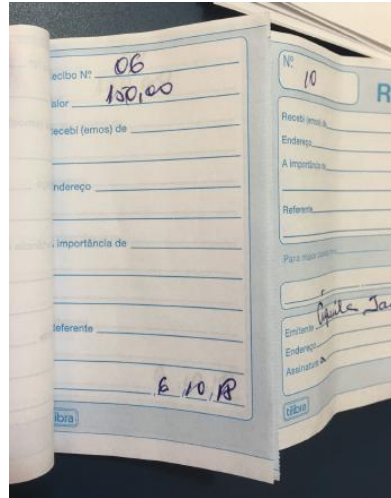 ecibo Nº 06
alor 150,00
ecebi (emos) de
ndereço
importância de
eferente
6 10 18
ibra
Nº
10
R
Recebi (emos) de
Endereço
A importância de
Referente
Para maior
Emitente
Endereço
Assinatura
tilibra